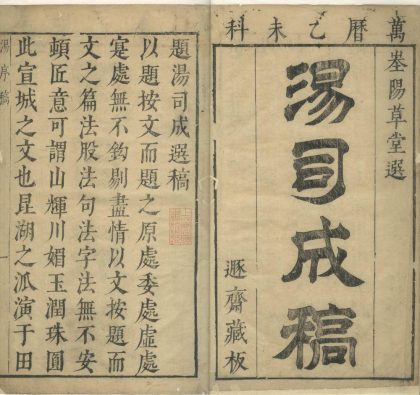 萬曆乙未科
峚陽草堂選
湯司成稿
遯齋藏板
題湯司成選稿
以題按文而題之原處委處虛處
寔處無不鈎剔盡情以文按題而
文之篇法股法句法字法無不安
頓匠意可謂山輝川媚玉潤珠圓
此宣城之文也昆湖之派演于田
湯序稿
一